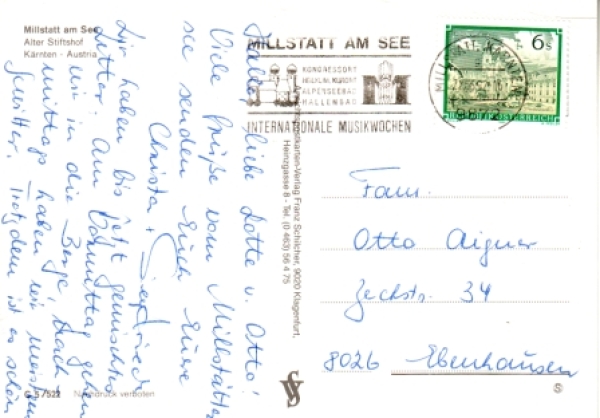 Millstatt am See
Alter Stiftshof
Kärnten - Austria
Hallo, liebe Lotte u. Otto!
Viele Grüße vom Millstätter
see senden Euch Eure
Christa + Siegfried
Wir haben bis jetzt gemischtes
Wetter. Am Vormittag gehen
wir in die Berge, nach-
mittags haben wir meistens
Gewitter. Trotzdem ist es schön
G 5/522 Nachdruck verboten
MILLSTATT AM SEE
KONGRESSORT
ALPENSEEBAD
HALLENBAD
INTERNATIONALE MUSIKWOCHEN
MILLSTATT, KÄRNTEN
6s
REPUBLIK ÖSTERREICH
Ansichtskarten-Verlag Franz Schilcher, 9020 Klagenfurt,
Heinzgasse 8 - Tel. (0 463) 56 4 75
Fam.
Otto Aigner
Zechstr. 34
8026 Ebenhausen
S